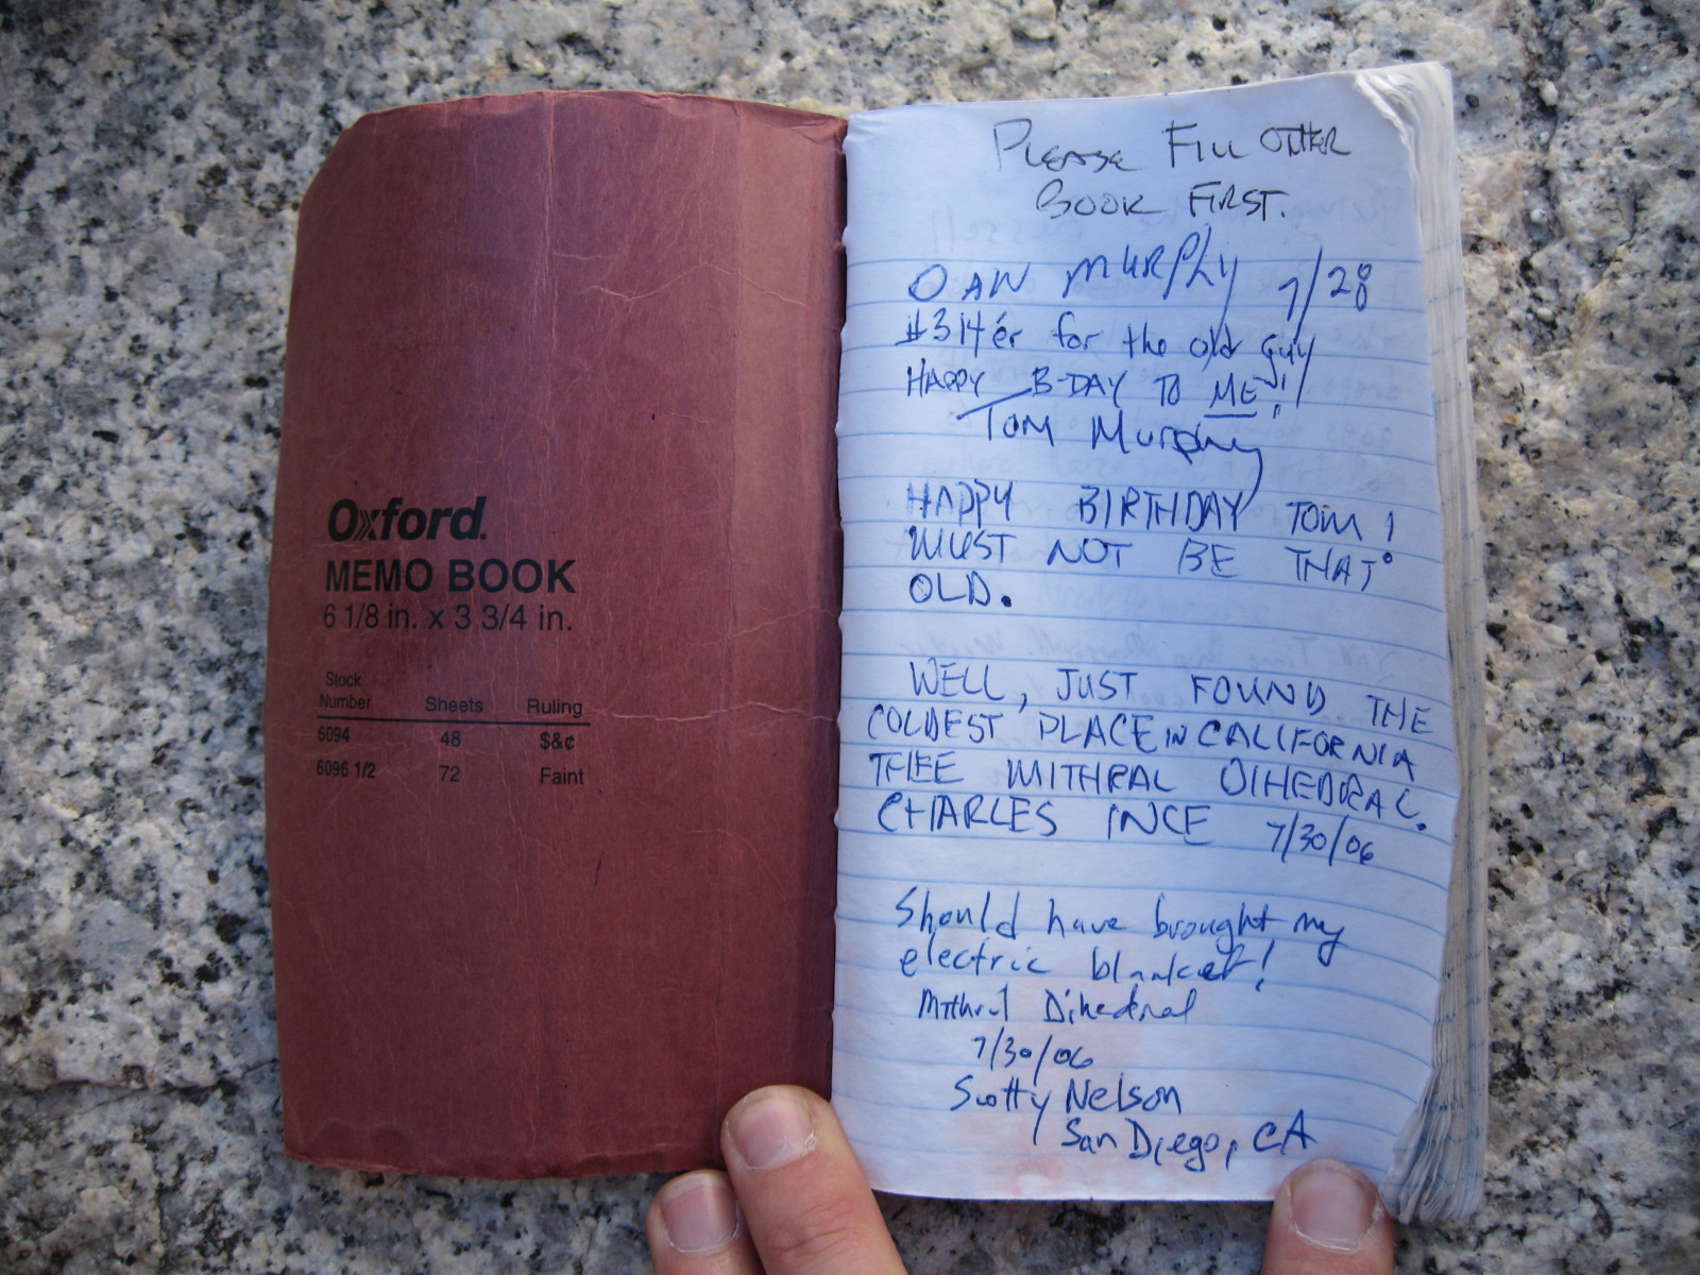 Oxford.
MEMO BOOK
6 1/8 in. x 3 3/4 in.
Stock
Number Sheets Ruling
6094 48 $&¢
6096 1/2 72 Faint
PLEASE FILL OTHER
BOOK FIRST.
DAN MURPHY 7/28
#314er for the old guy
HAPPY B-DAY TO ME!!
Tom Murphy
HAPPY BIRTHDAY TOM!
MUST NOT BE THAT
OLD.
WELL, JUST FOUND THE
COLDEST PLACE IN CALIFORNIA
THEE MITHRAL DIHEDRAL.
CHARLES INCE 7/30/06
Should have brought my
electric blanket!
Mithral Dihedral
7/30/06
Scotty Nelson
San Diego, CA